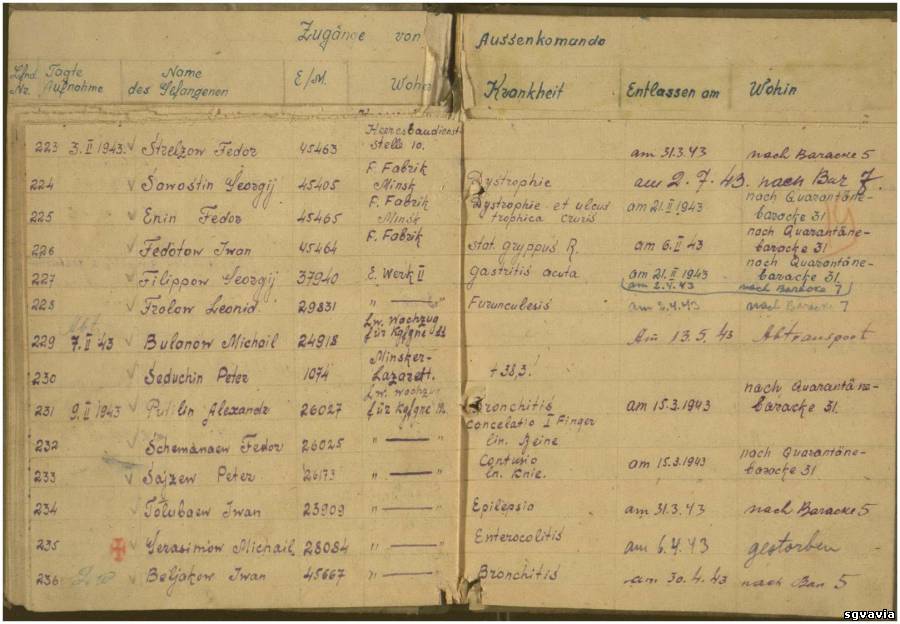 Zugänge von Aussenkomando
Lfnd Nr. Tagte Aufnahme Name des Gefangenen E/M. Woher Krankheit Entlassen am Wohin
223 3.II 1943. Strelzow Fedor 45463 Heeresbaudienst- stelle 10. am 31.3.43 nach Baracke 5
224 Sawostin Georgij 45405 F. Fabrik Minsk Dystrophie am 2.7.43. nach Bar 7.
225 Enin Fedor 45465 F. Fabrik Minsk Dystrophie et ulcus trophica cruris am 21.II 1943 nach Quarantäne- baracke 31
226 Fedotow Iwan 45464 F. Fabrik stat. gryppus R. am 6.II 43 nach Quarantäne- baracke 31
227 Filippow Georgij 37940 E. Werk II gastritis acuta am 21.II 1943 nach Quarantäne- baracke 31.
am 2.4.43 nach Baracke 7
228 Frolow Leonid 29831 " — " Furunculesis am 2.4.43 nach Baracke 7
229 7.II 43 Bulanow Michail 24918 Lw. Wachzug für Kgfgne Am 13.5.43 Abtransport
230 Seduchin Peter 1074 Minsker- Lazarett. + 38,3.
231 9.II 1943 Putilin Alexandr 26027 Lw. Wachzug für Kgfgne Bronchitis am 15.3.1943 nach Quarantäne- baracke 31.
232 Schemanaew Fedor 26025 " — " concelatio I Finger lin. Beine
233 Sajzew Peter 26173 " — " Contusio ln. Knie. am 15.3.1943 nach Quarantäne- baracke 31
234 Tolubaew Iwan 23909 " — " Epilepsia am 31.3.43 nach Baracke 5
235 Gerasimow Michail 28084 " — " Enterocolitis am 6.4.43 gestorben
236 Beljakow Iwan 45667 " — " Bronchitis am 30.4.43 nach Bar 5
sgvavia